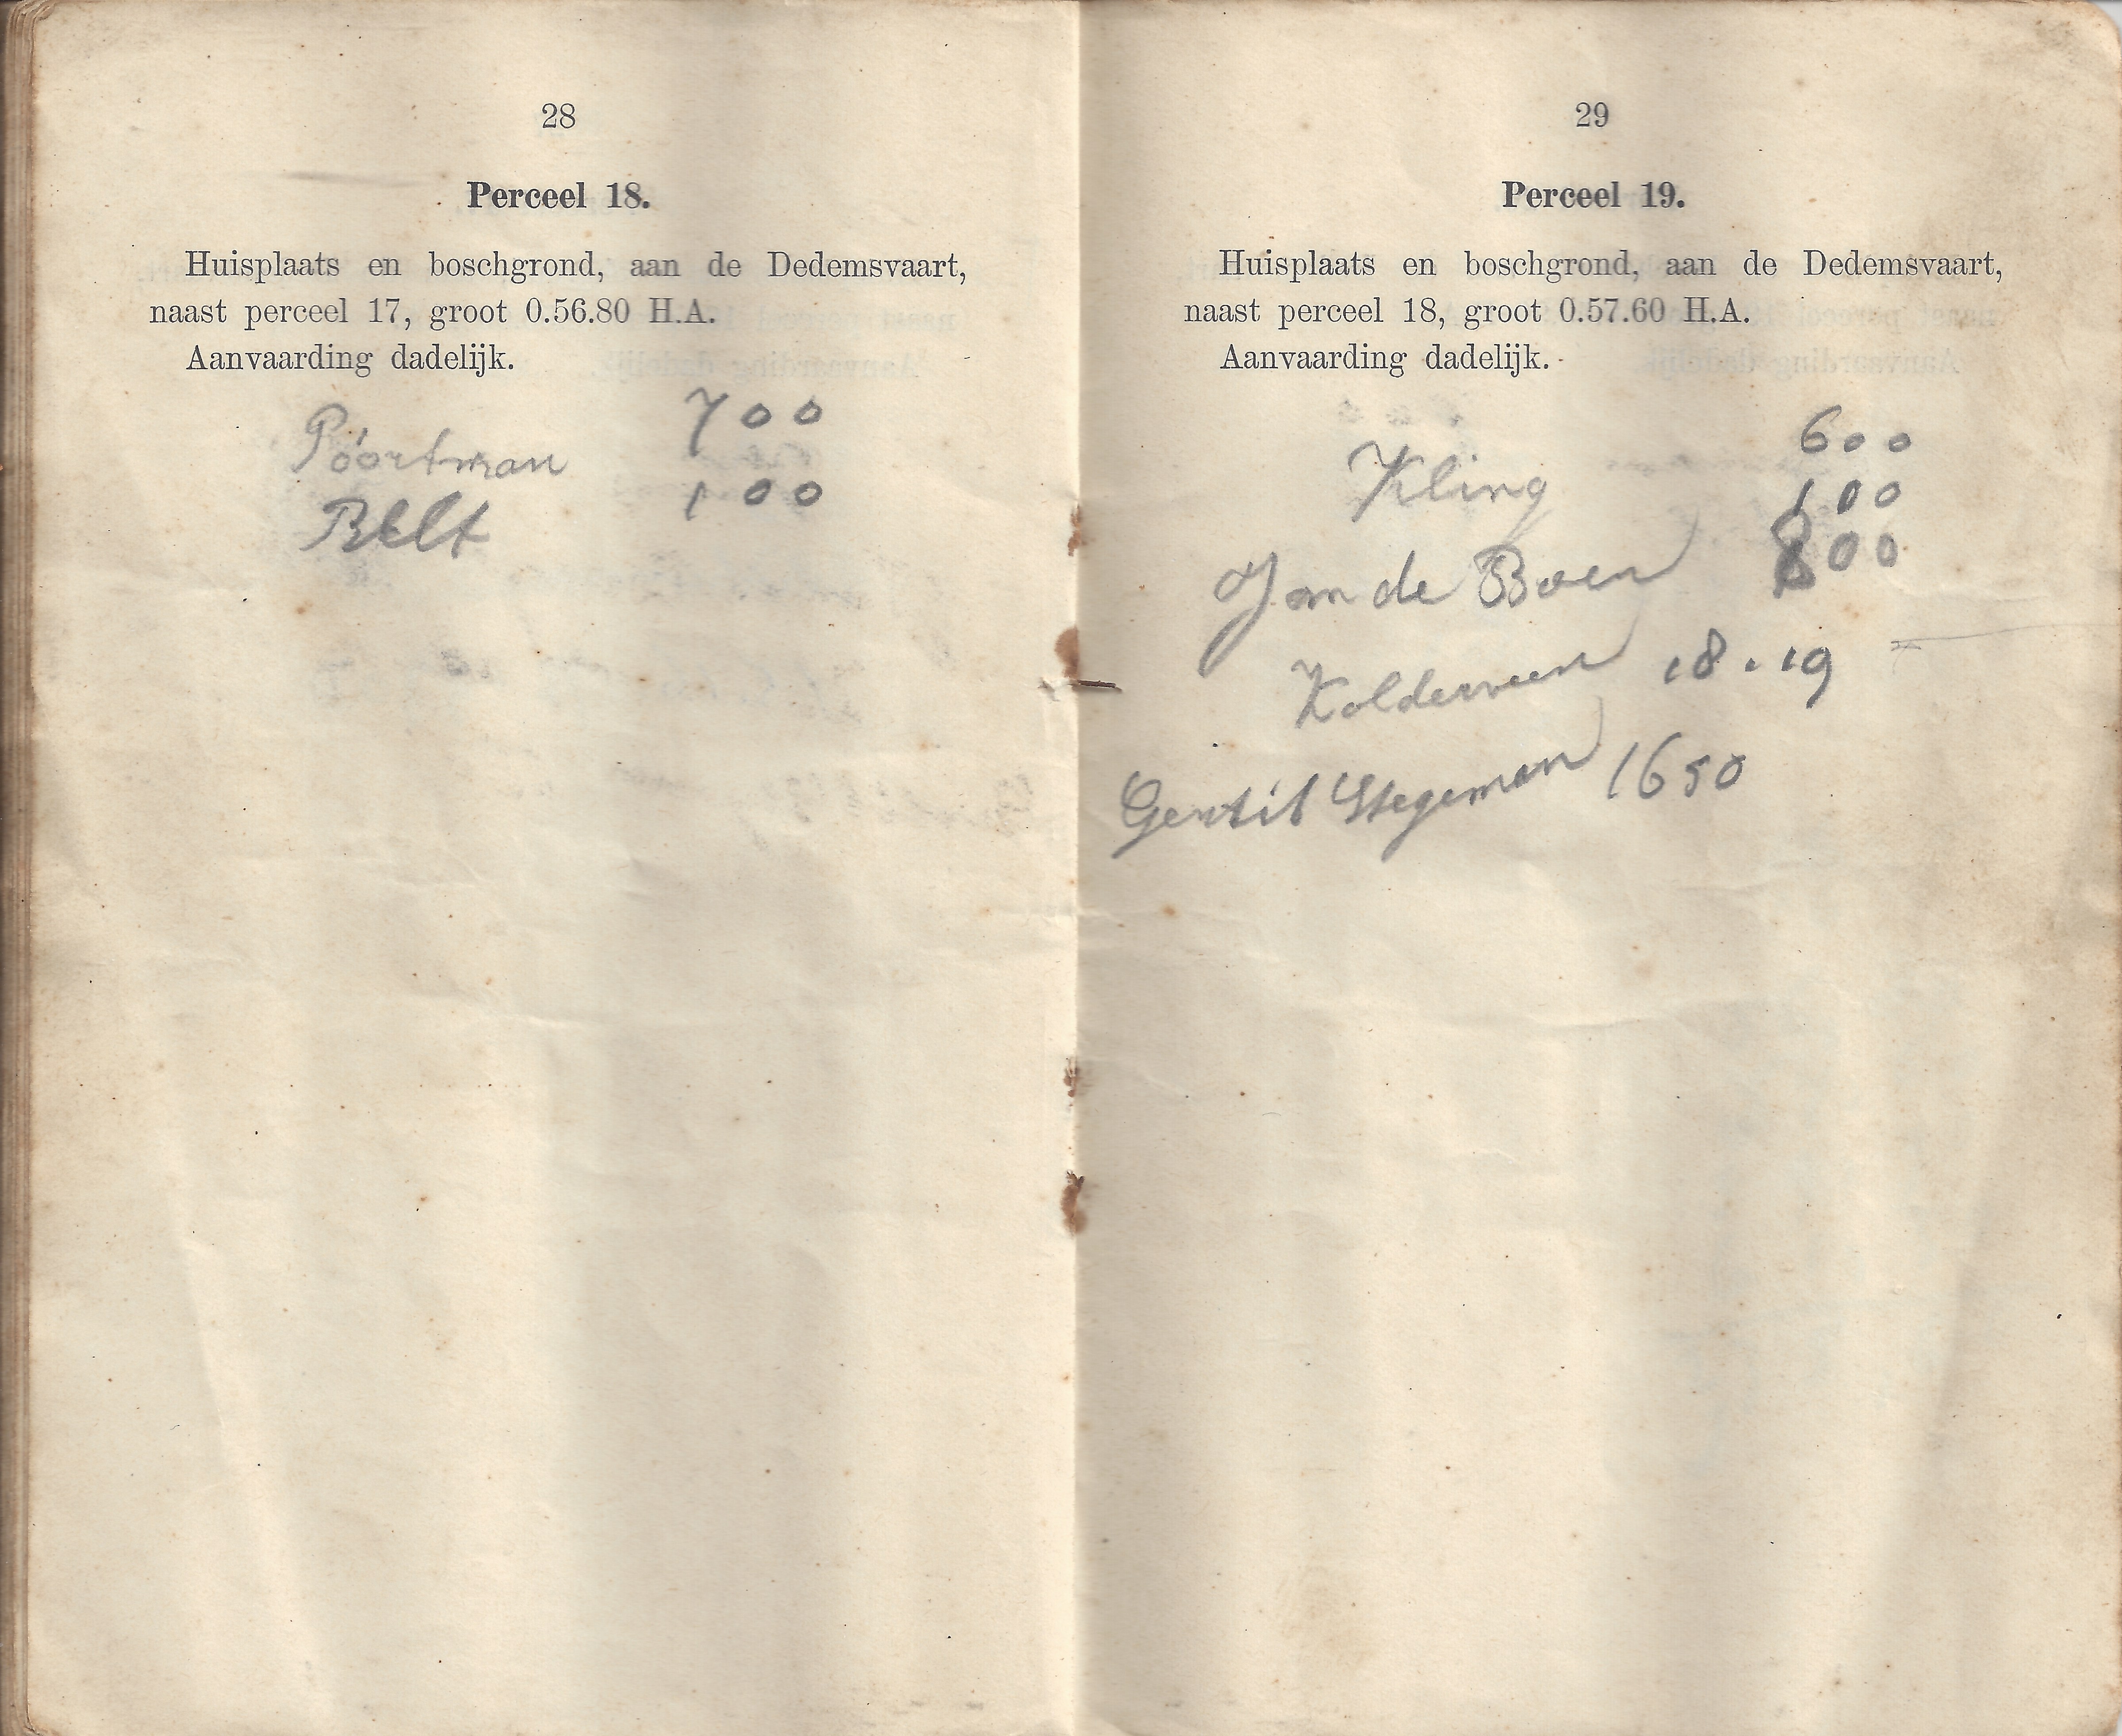 28
Perceel 18.
Huisplaats en boschgrond, aan de Dedemsvaart,
naast perceel 17, groot 0.56.80 H.A.
Aanvaarding dadelijk.
700
Poortman
100
Belt
29
Perceel 19.
Huisplaats en boschgrond, aan de Dedemsvaart,
naast perceel 18, groot 0.57.60 H.A.
Aanvaarding dadelijk.
600
Kling
100
Jan de Boer 800
Kolderveen 18.19
Stegeman 1650